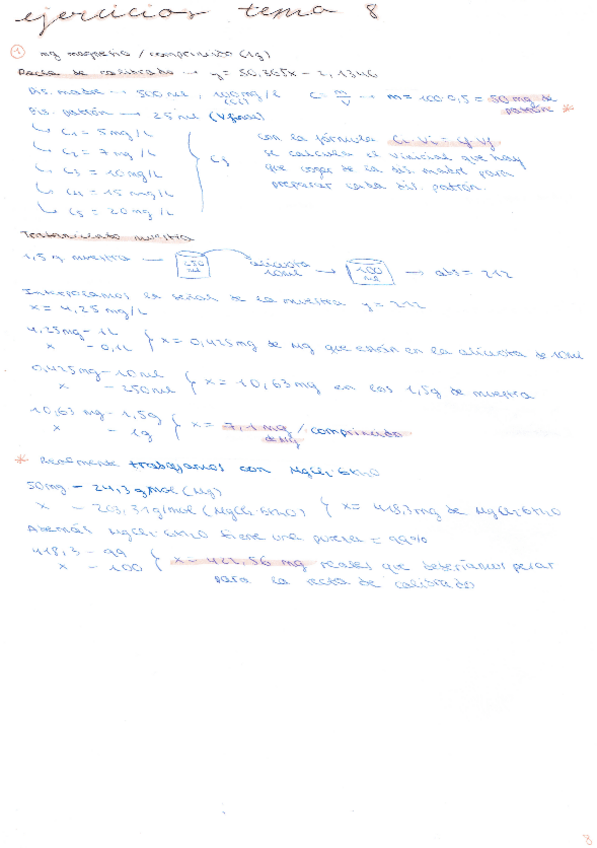 ejercicios tema 8
1 mg magnesio / comprimido (1g)
Recta de calibrado → y = 50,365x - 2,1346
Dis. madre → 500 mL, 100 mg/L C = m/V → m = 100·0,5 = 50 mg de patrón *
Dis. patrón → 25 mL (V final)
↳ C1 = 5 mg/L
↳ C2 = 7 mg/L
↳ C3 = 10 mg/L
↳ C4 = 15 mg/L
↳ C5 = 20 mg/L
Cf
con la fórmula Ci·Vi = Cf·Vf
se calcula el Vinicial que hay
que coger de la dis. madre para
preparar cada dis. patrón.
Tratamiento muestra
1,5 g muestra → 250 mL alícuota 10 mL → 100 mL → abs = 212
Interpolamos la señal de la muestra y = 212
x = 4,25 mg/L
4,25 mg - 1L
x - 0,1L } x = 0,425 mg de Mg que están en la alícuota de 10 mL
0,425 mg - 10 mL
x - 250 mL } x = 10,63 mg en los 1,5 g de muestra
10,63 mg - 1,5g
x - 1g } x = 7,1 mg / comprimido
de Mg
* Realmente trabajamos con MgCl2·6H2O
50 mg - 24,3 g/mol (Mg)
x - 203,31 g/mol (MgCl2·6H2O) } x = 418,3 mg de MgCl2·6H2O
Además MgCl2·6H2O tiene una pureza = 99%
418,3 - 99
x - 100 } x = 422,56 mg reales que deberíamos pesar
para la recta de calibrado